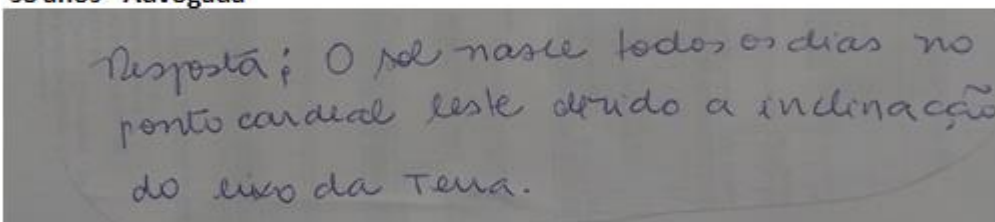 Resposta: O sol nasce todos os dias no
ponto cardeal leste devido a inclinacção
do eixo da Terra.